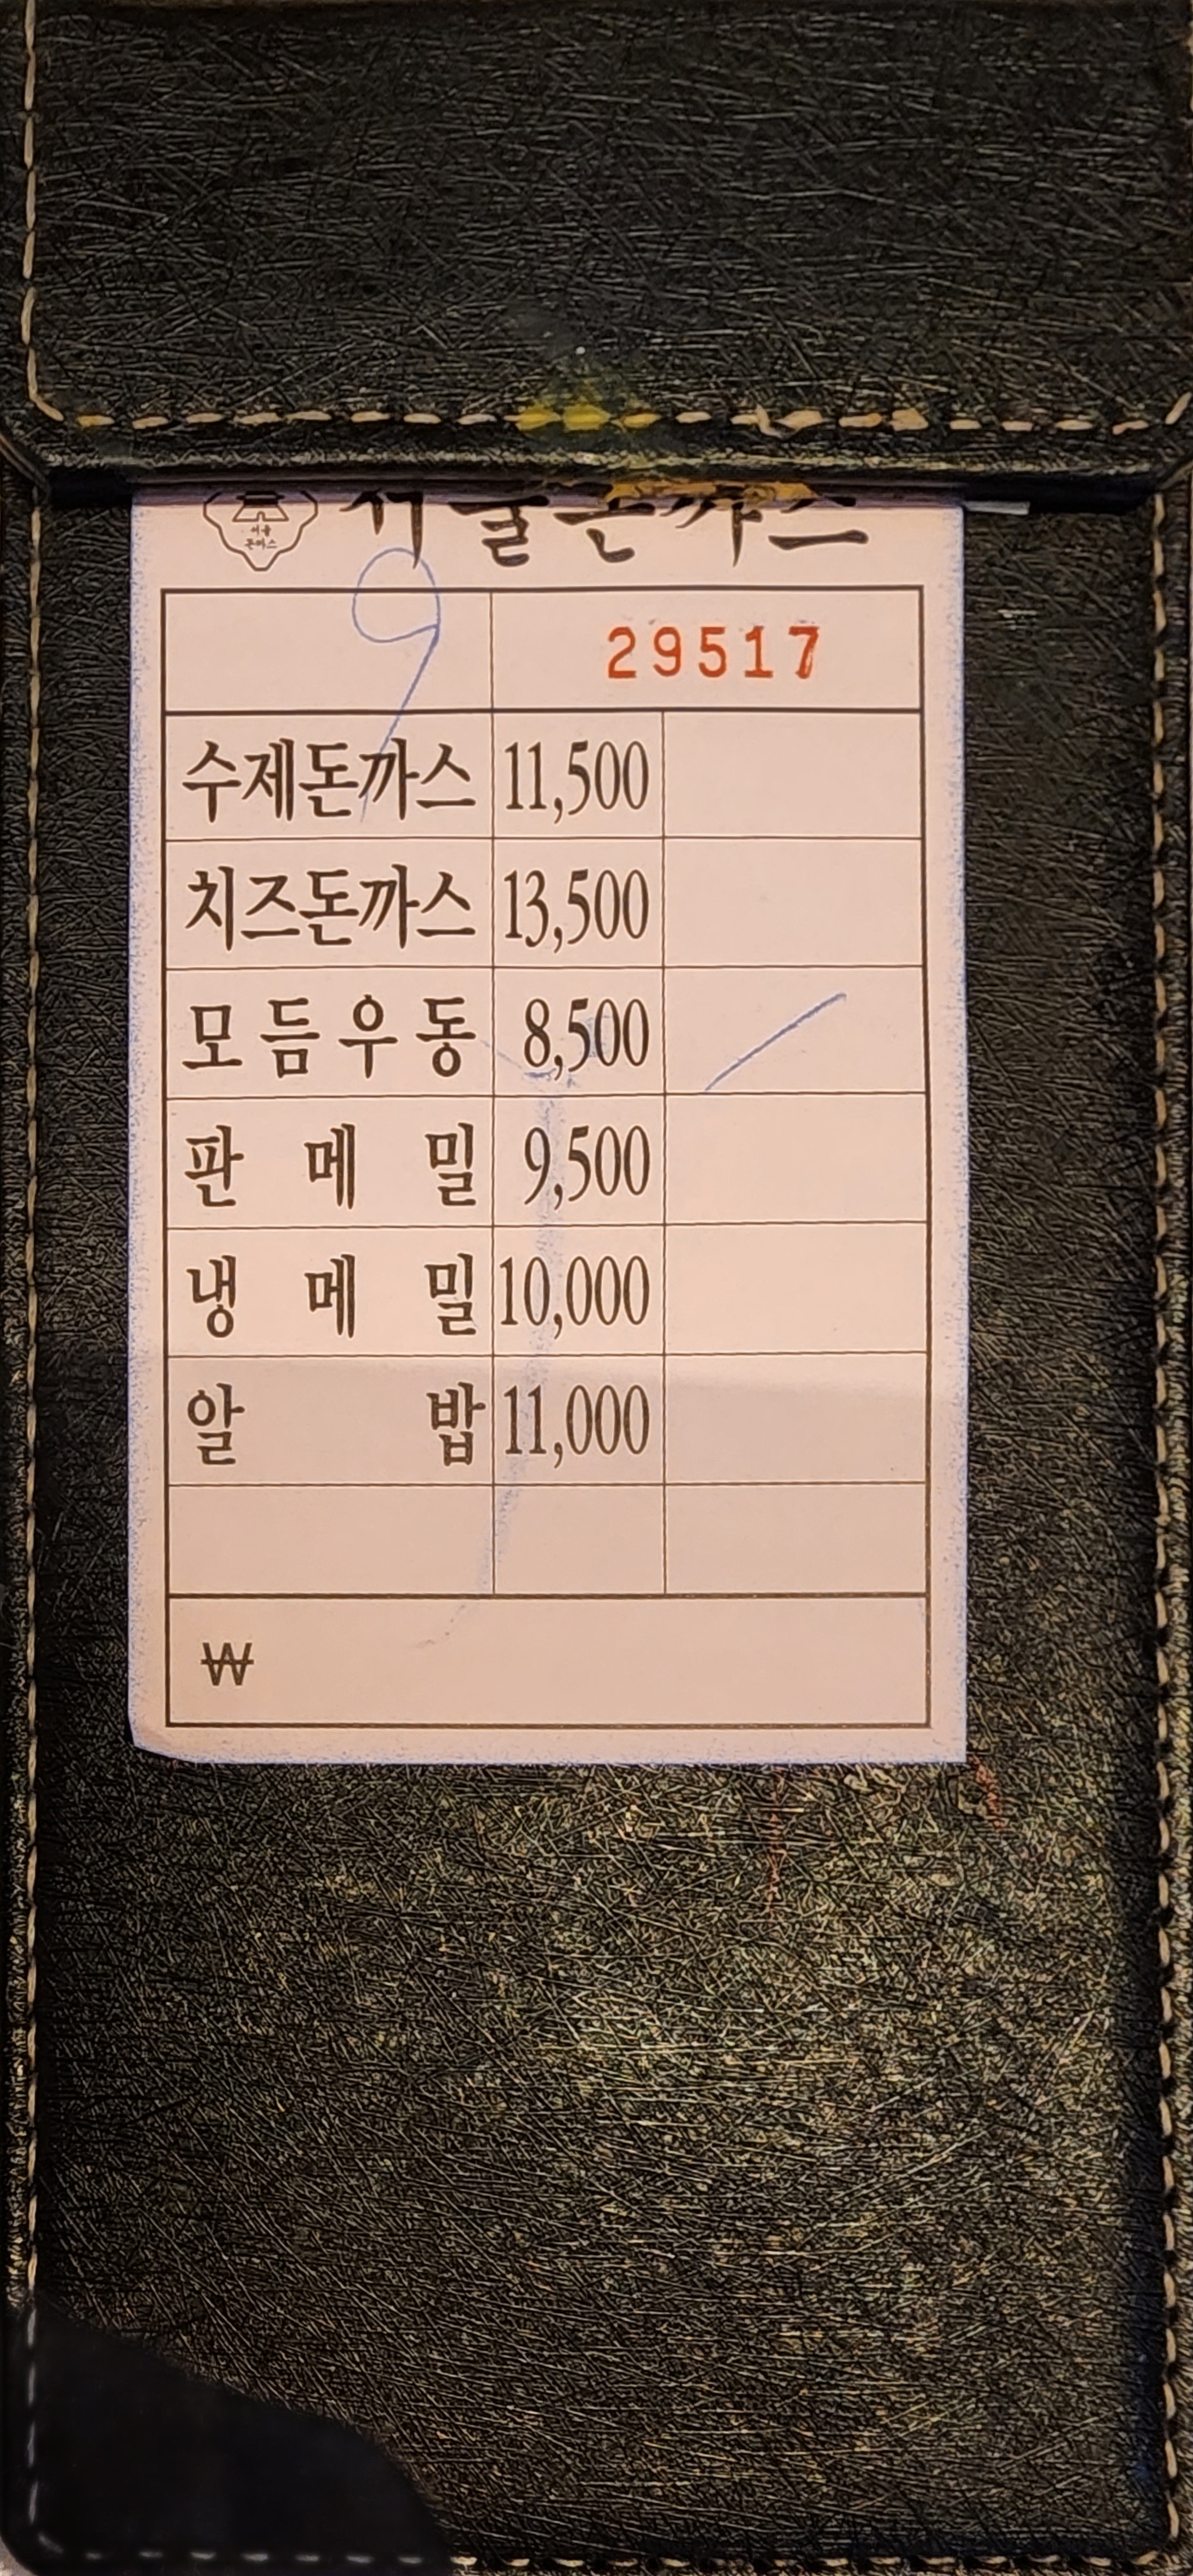 서울돈까스
서울
돈까스
9
29517
수제돈까스 11,500
치즈돈까스 13,500
모듬우동 8,500 /
판메밀 9,500
냉메밀 10,000
알밥 11,000
₩